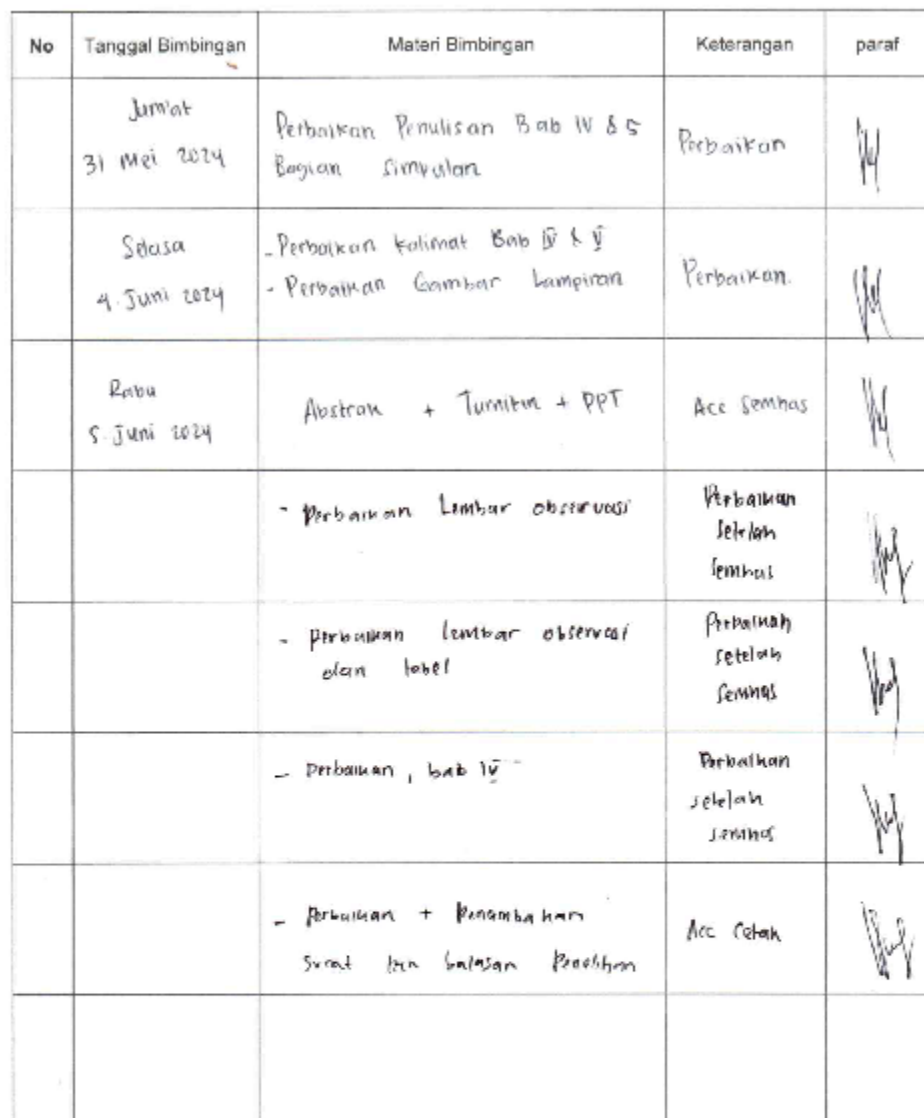 No Tanggal Bimbingan Materi Bimbingan Keterangan paraf
Jum'at
31 Mei 2024
Perbaikan Penulisan Bab IV & 5
Bagian Simpulan
Perbaikan
Selasa
4. Juni 2024
- Perbaikan Kalimat Bab IV & V
- Perbaikan Gambar Lampiran
Perbaikan.
Rabu
5. Juni 2024
Abstrak + Turnitin + PPT
Acc Semhas
- Perbaikan Lembar observasi
Perbaikan
Setelah
Semhas
- perbaikan lembar observasi
dan tabel
Perbaikan
setelah
Semhas
- perbaikan, bab IV
Perbaikan
setelah
semhas
- Perbaikan + Penambahan
Surat izin balasan Penelitian
Acc Cetak